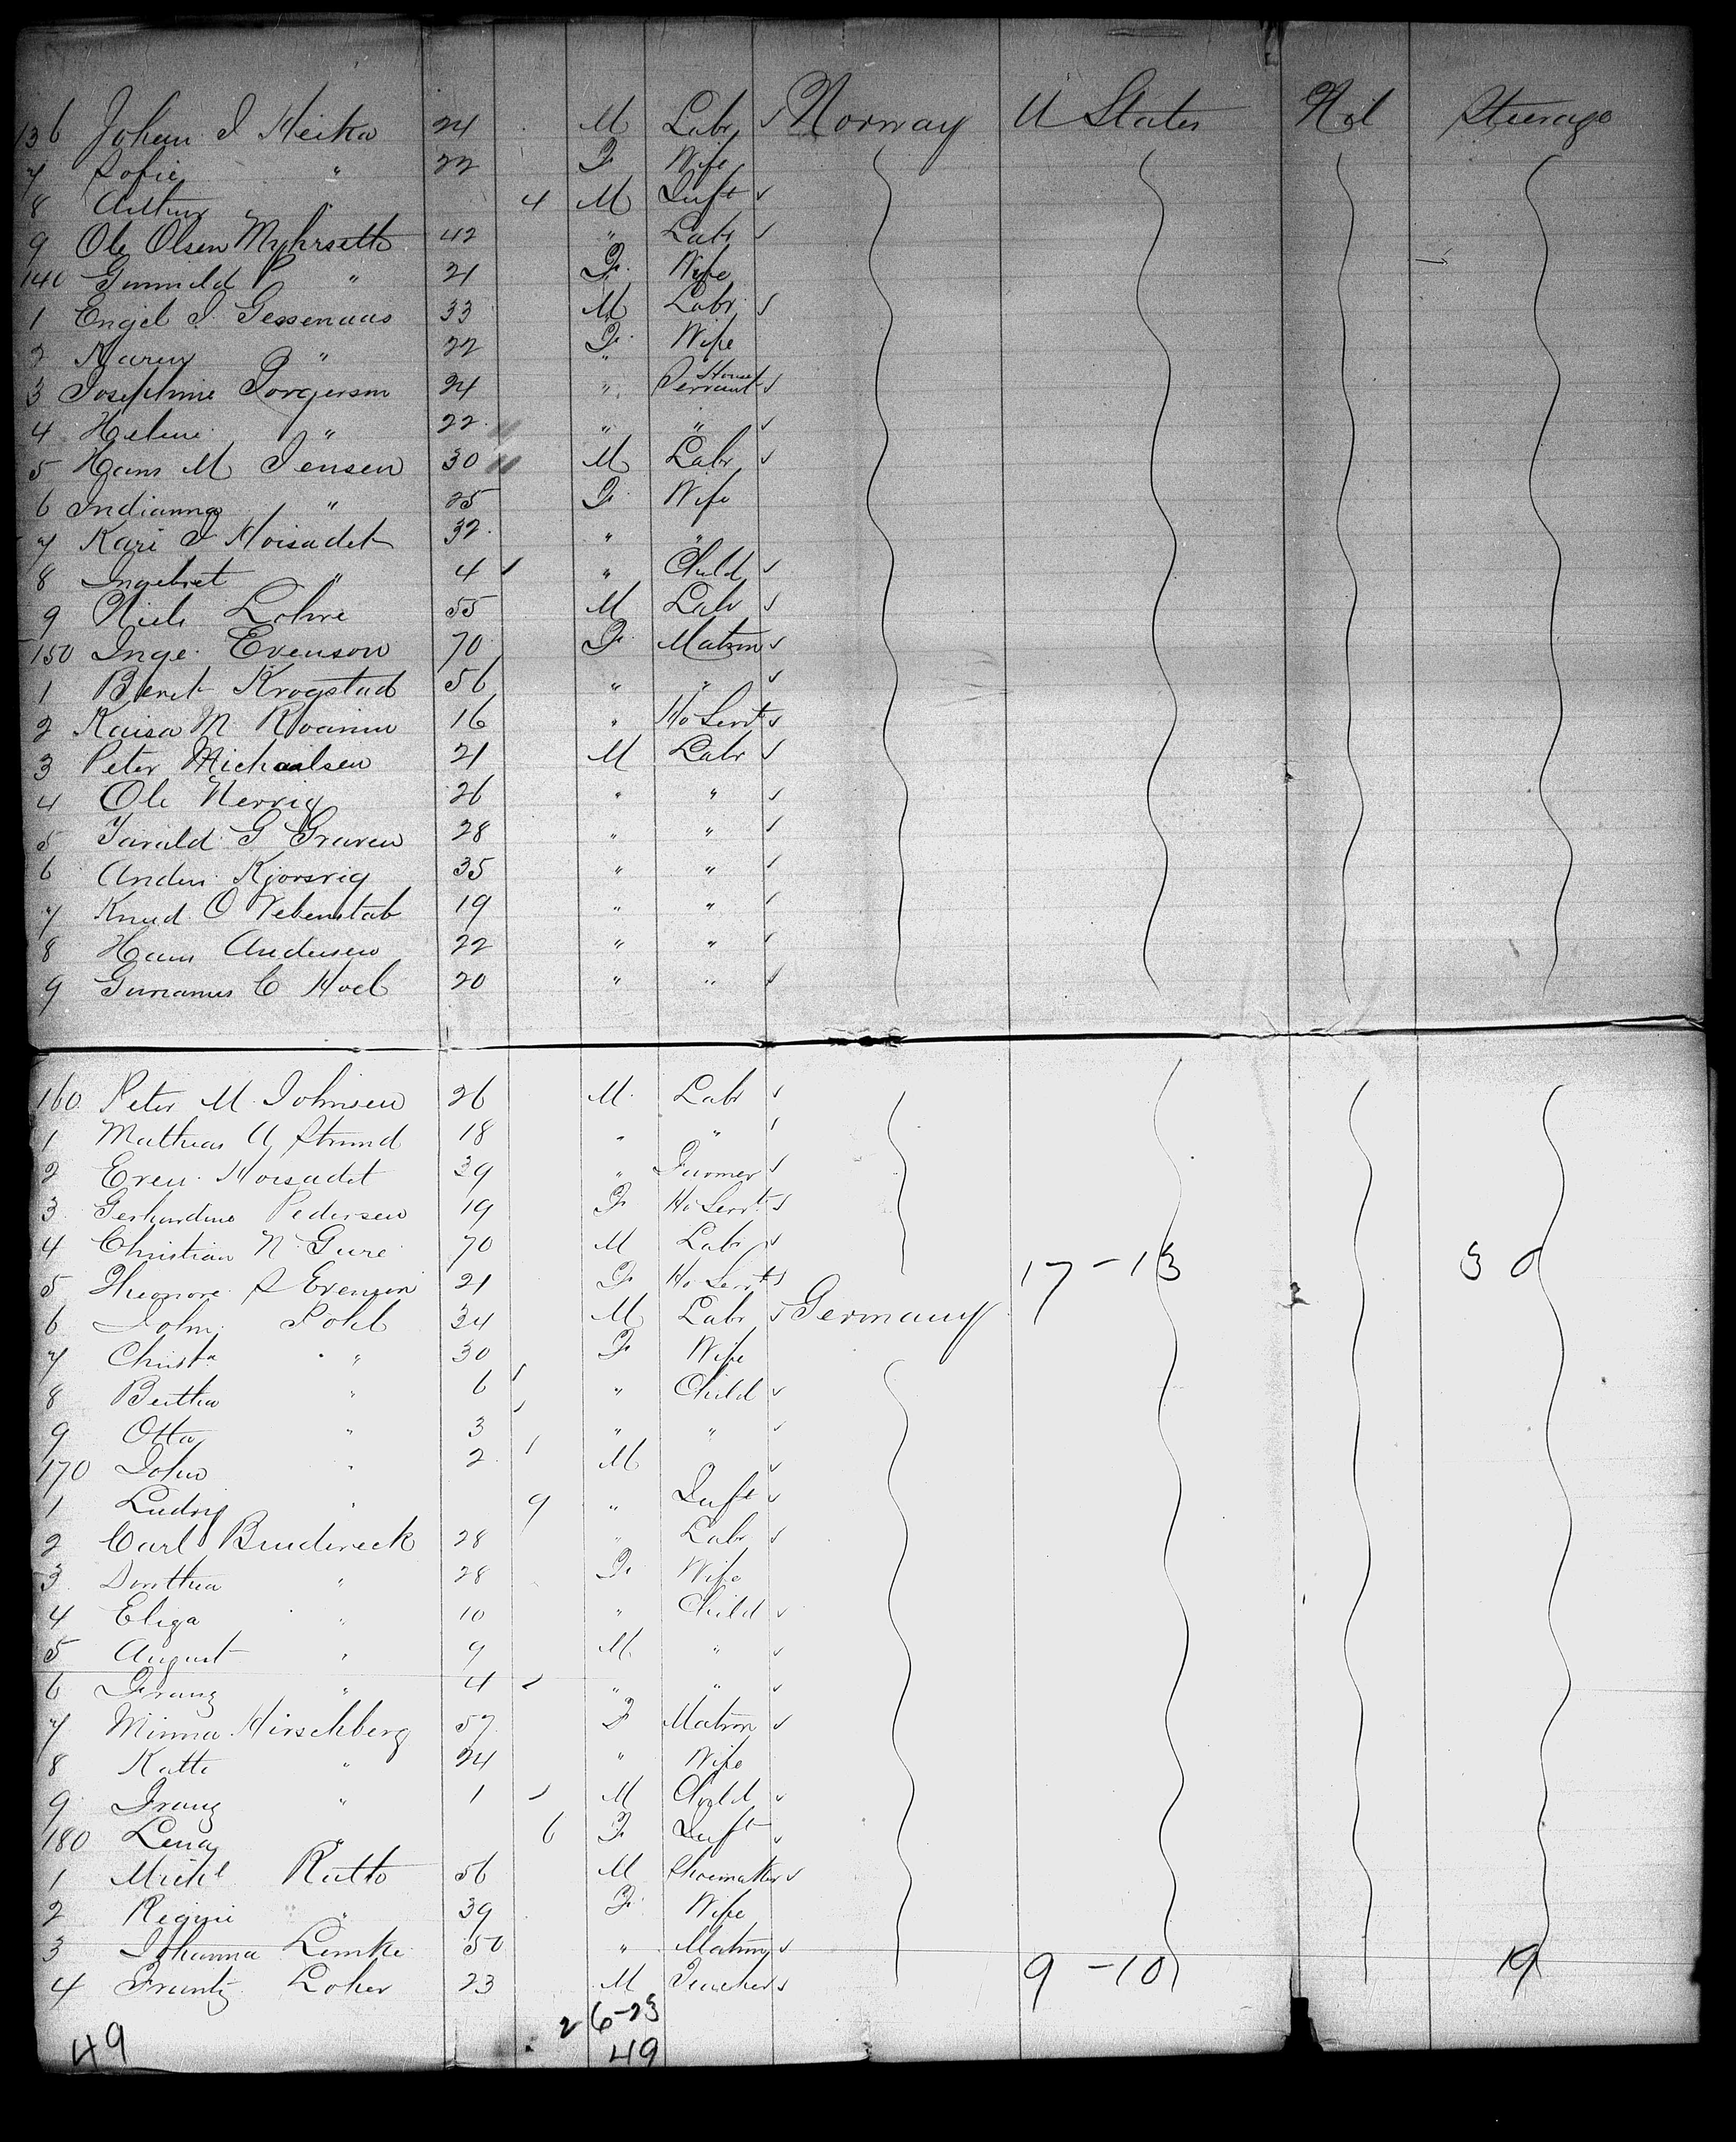 136 Johan I Heika 24 M Labr Norway U States Nil Steerage
7 Sofie " 22 F Wife
8 Arthur " 4 M Inft
9 Ole Olsen Myhrseth 42 " Labr
140 Gunnild P " 21 F Wife
1 Engel I Gessenaas 33 M Labr
2 Karen " 22 F Wife
3 Josephine Torgersen 24 " House Servant
4 Helene " 22 " "
5 Hans M Jensen 30 M Labr
6 Indianna " 25 F Wife
7 Kari I Hoisadet 32 " "
8 Ingebret " 4 " Child
9 Niels Lohne 55 M Labr
150 Inge Evenson 70 F Matron
1 Beret Krogstad 56 " "
2 Kaisa M 16 " Ho Servt
3 Peter Michaelsen 21 M Labr
4 Ole Nervig 26 " "
5 Tarald G Graven 28 " "
6 Anders Kjorsvig 35 " "
7 Knud O Vebenstab 19 " "
8 Hans Andersen 22 " "
9 C Hoel 20 " "
160 Peter M Johnsen 26 M Labr
1 Mathias A Strand 18 " "
2 Even Hoisadet 39 " Farmer
3 Gerhardine Pedersen 19 F Ho Servt
4 Christian N Gure 70 M Labr
5 S Evensen 21 F Ho Servt 17-13 30
6 John Pohl 34 M Labr Germany
7 Christa " 30 F Wife
8 Bertha " 6 " Child
9 Otta " 3 " "
170 John " 2 M
1 Ludvig " 9 " Inft
2 Carl Brudereck 28 " Labr
3 Dorthea " 28 F Wife
4 Eliza " 10 " Child
5 August " 9 M "
6 Franz " 4 " "
7 Minna Hirschberg 57 F Matron
8 Katte " 24 " Wife
9 Franz " 1 M Child
180 Lena " 6 F Inft
1 Michl Rutto 56 M Shoemaker
2 Regine " 39 F Wife
3 Johanna Lemke 50 " Matron
4 Frantz Loher 23 M Teacher 9-10 19
26-23
49 49